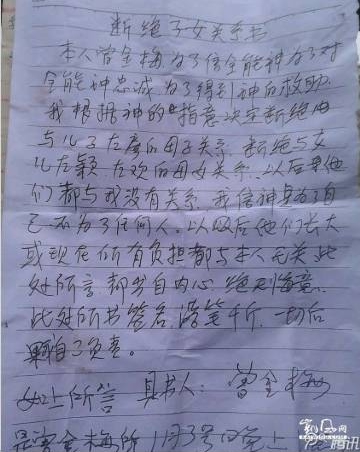 断绝子女关系书
本人曾金梅为了信全能神为了对
全能神忠诚为了得到神的救助
我根据神的"指意决定断绝
与儿子左彦的母子关系.断绝与女
儿左颖左欢的母女关系.以后里他
们都与我没有关系.我信神是为了自
己不为了任何人.以后他们长大
或现在所有负担都与本人无关此
处所言都发自内心.绝不悔意.
此处所书签名.落笔千斤.一切后
果自己负责.
如上所言 具书人: 曾金梅
是曾金梅所1月3号晚上
腾讯